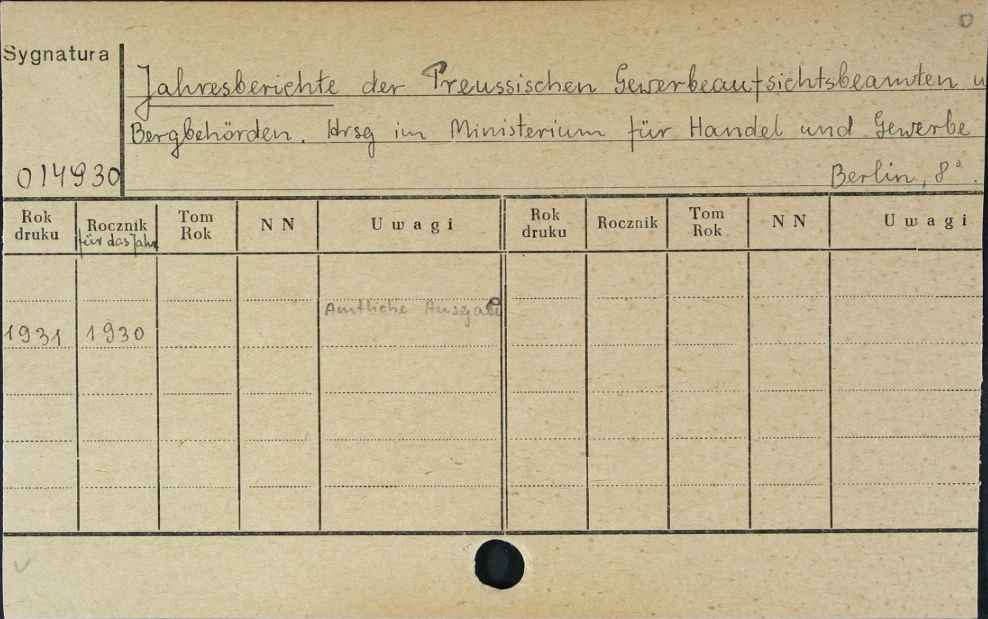 Sygnatura
Jahresberichte der Preussischen Gewerbeaufsichtsbeamten u
Bergbehörden. Hrsg im Ministerium für Handel und Gewerbe
014930 Berlin, 8°.
Rok druku Rocznik für das Jahr Tom Rok N N Uwagi Rok druku Rocznik Tom Rok N N Uwagi
Amtliche Ausgabe
1931 1930